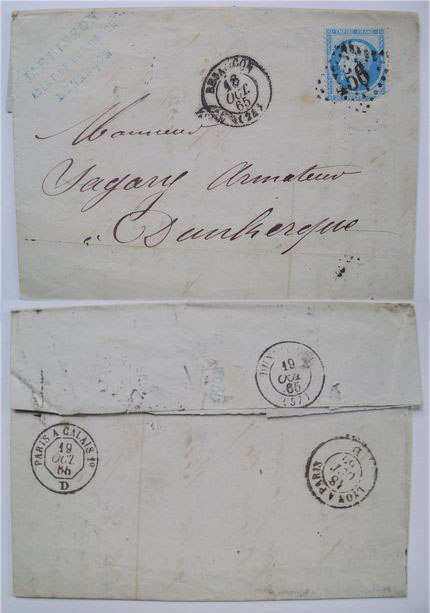 BESANÇON
18
OCT.
65
(24)
EMPIRE FRANC
Monsieur
Armateur
à Dunkerque
BESANCON
19
OCT.
65
(57)
PARIS A CALAIS 1º
19
OCT.
65
D
LYON A PARIS
18
OCT.
65
D